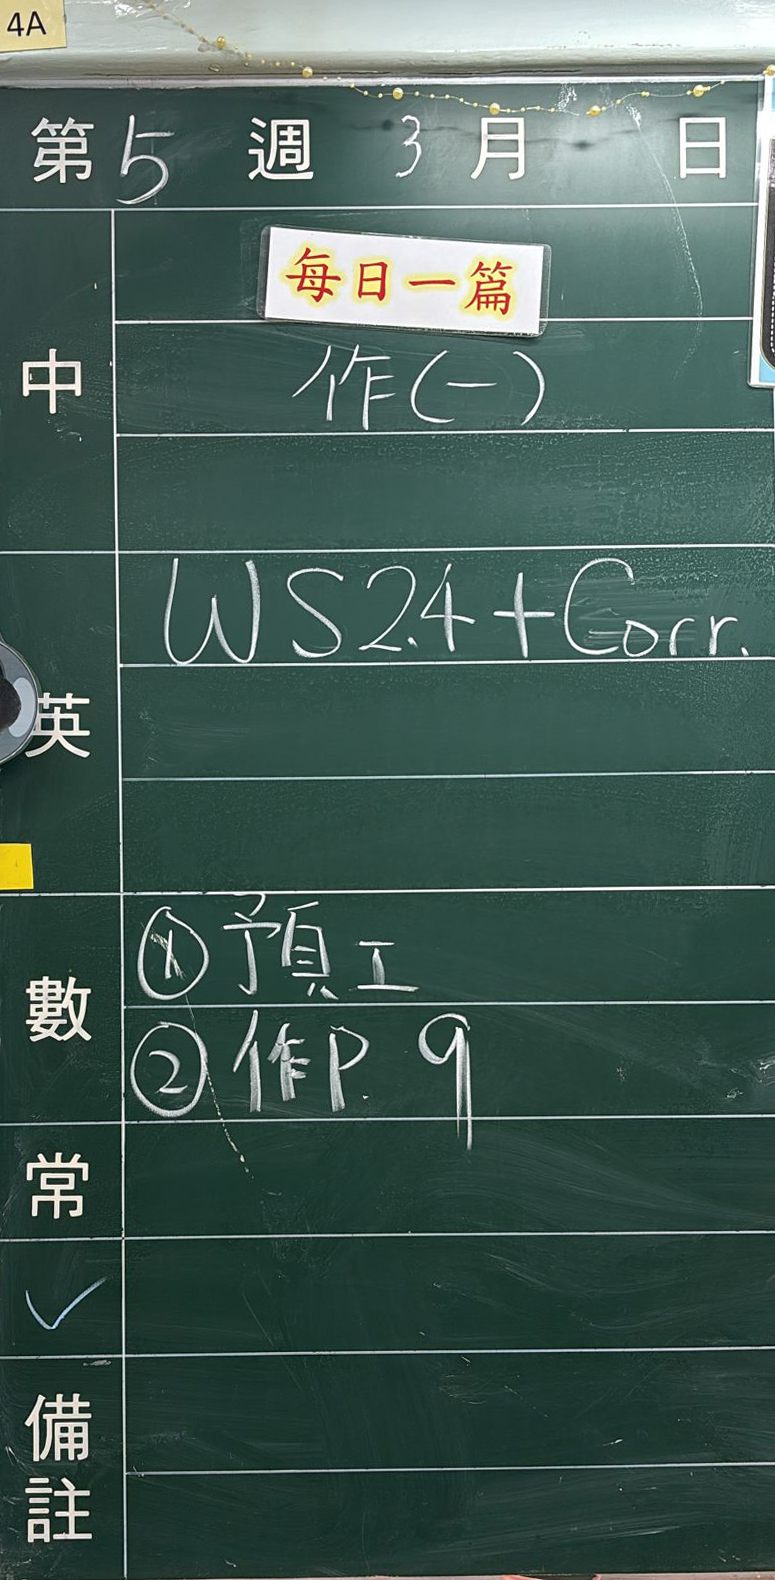 4A
第5週 3月 日
中
每日一篇
作(一)
英
WS2.4+Corr.
數
① 預工
② 作P.9
常
✓
備註